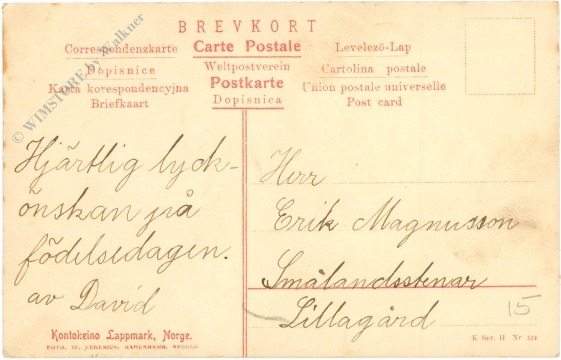 BREVKORT
Correspondenzkarte Carte Postale Levelezö-Lap
Dopisnice Weltpostverein Cartolina postale
Karta korespondencyjna Postkarte Union postale universelle
Briefkaart Dopisnica Post card
© WIMSTORE by Walkner
Hjärtlig lyck-
önskan på
födelsedagen.
av David
Herr
Erik Magnusson
Smålandsstenar
Lillagård
15
Kontokeino Lappmark, Norge.
FOTO. W. SVERGE
K Ser. II Nr 224